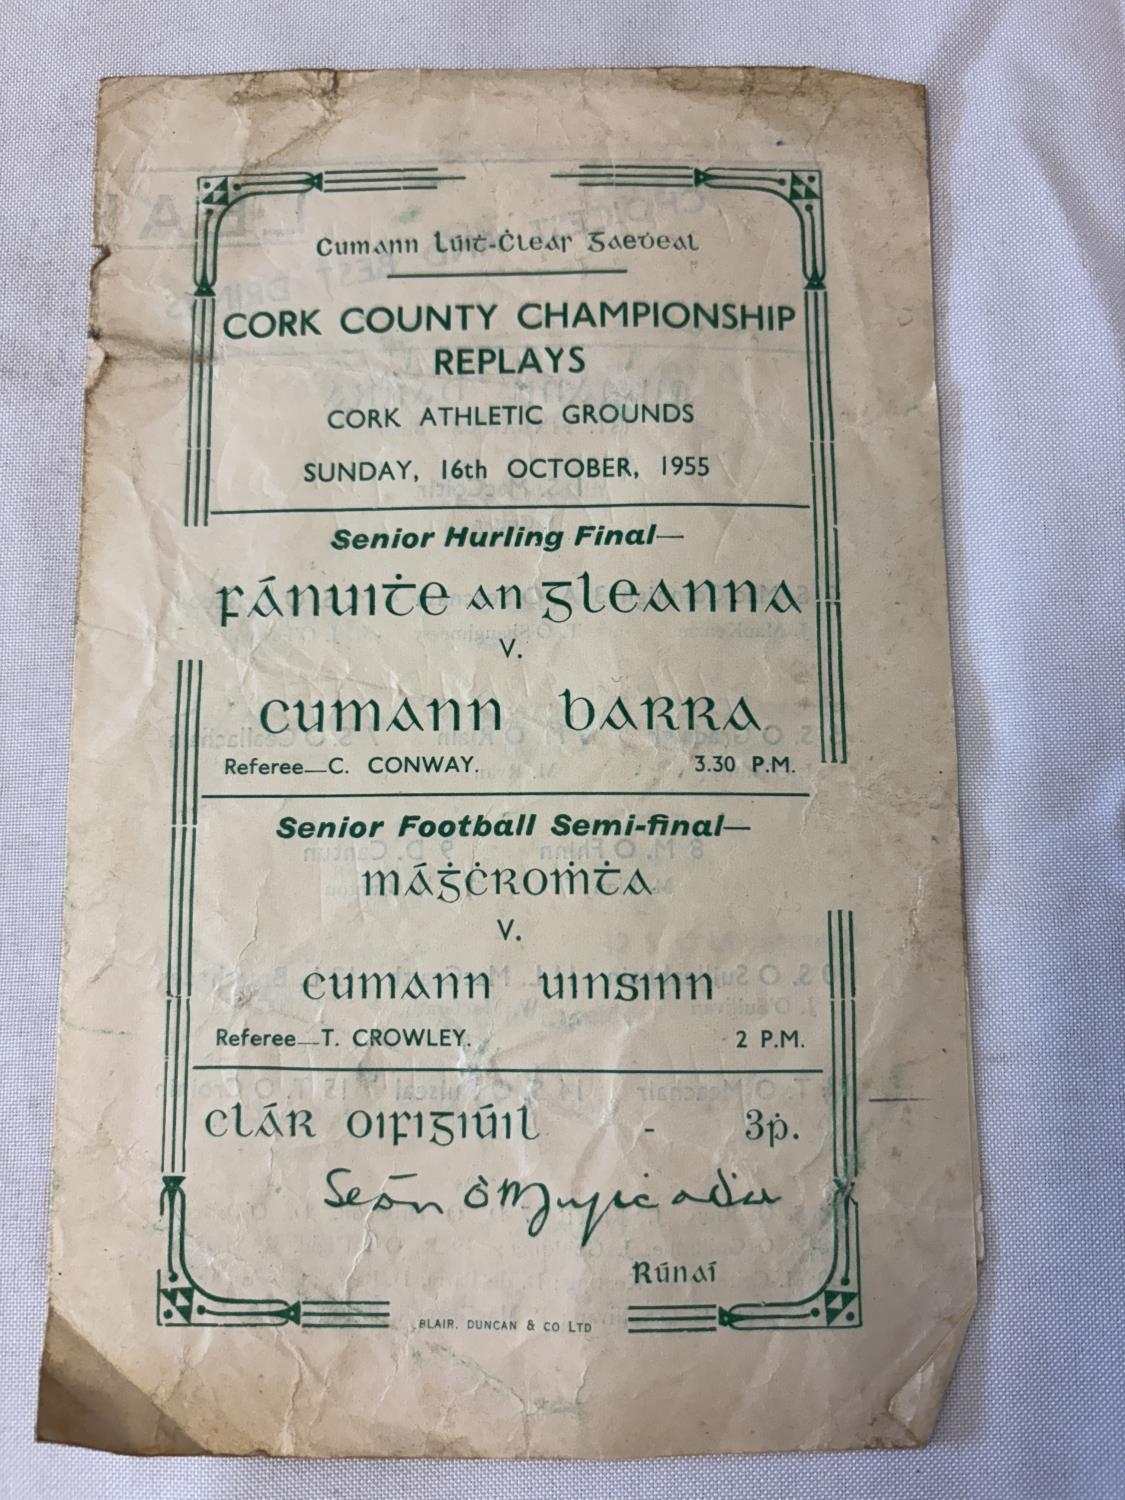 Cumann Lúiṫ-Ċlear Gaeḋeal
CORK COUNTY CHAMPIONSHIP
REPLAYS
CORK ATHLETIC GROUNDS
SUNDAY, 16th OCTOBER, 1955
Senior Hurling Final—
Fánuiṫe an Gleanna
V.
Cumann Barra
Referee—C. CONWAY. 3.30 P.M.
Senior Football Semi-final—
Máġċromṫa
V.
Cumann Uinsinn
Referee—T. CROWLEY. 2 P.M.
Clár Oifigiúil - 3ṗ.
Seán Ó
Rúnaí
BLAIR, DUNCAN & CO LTD